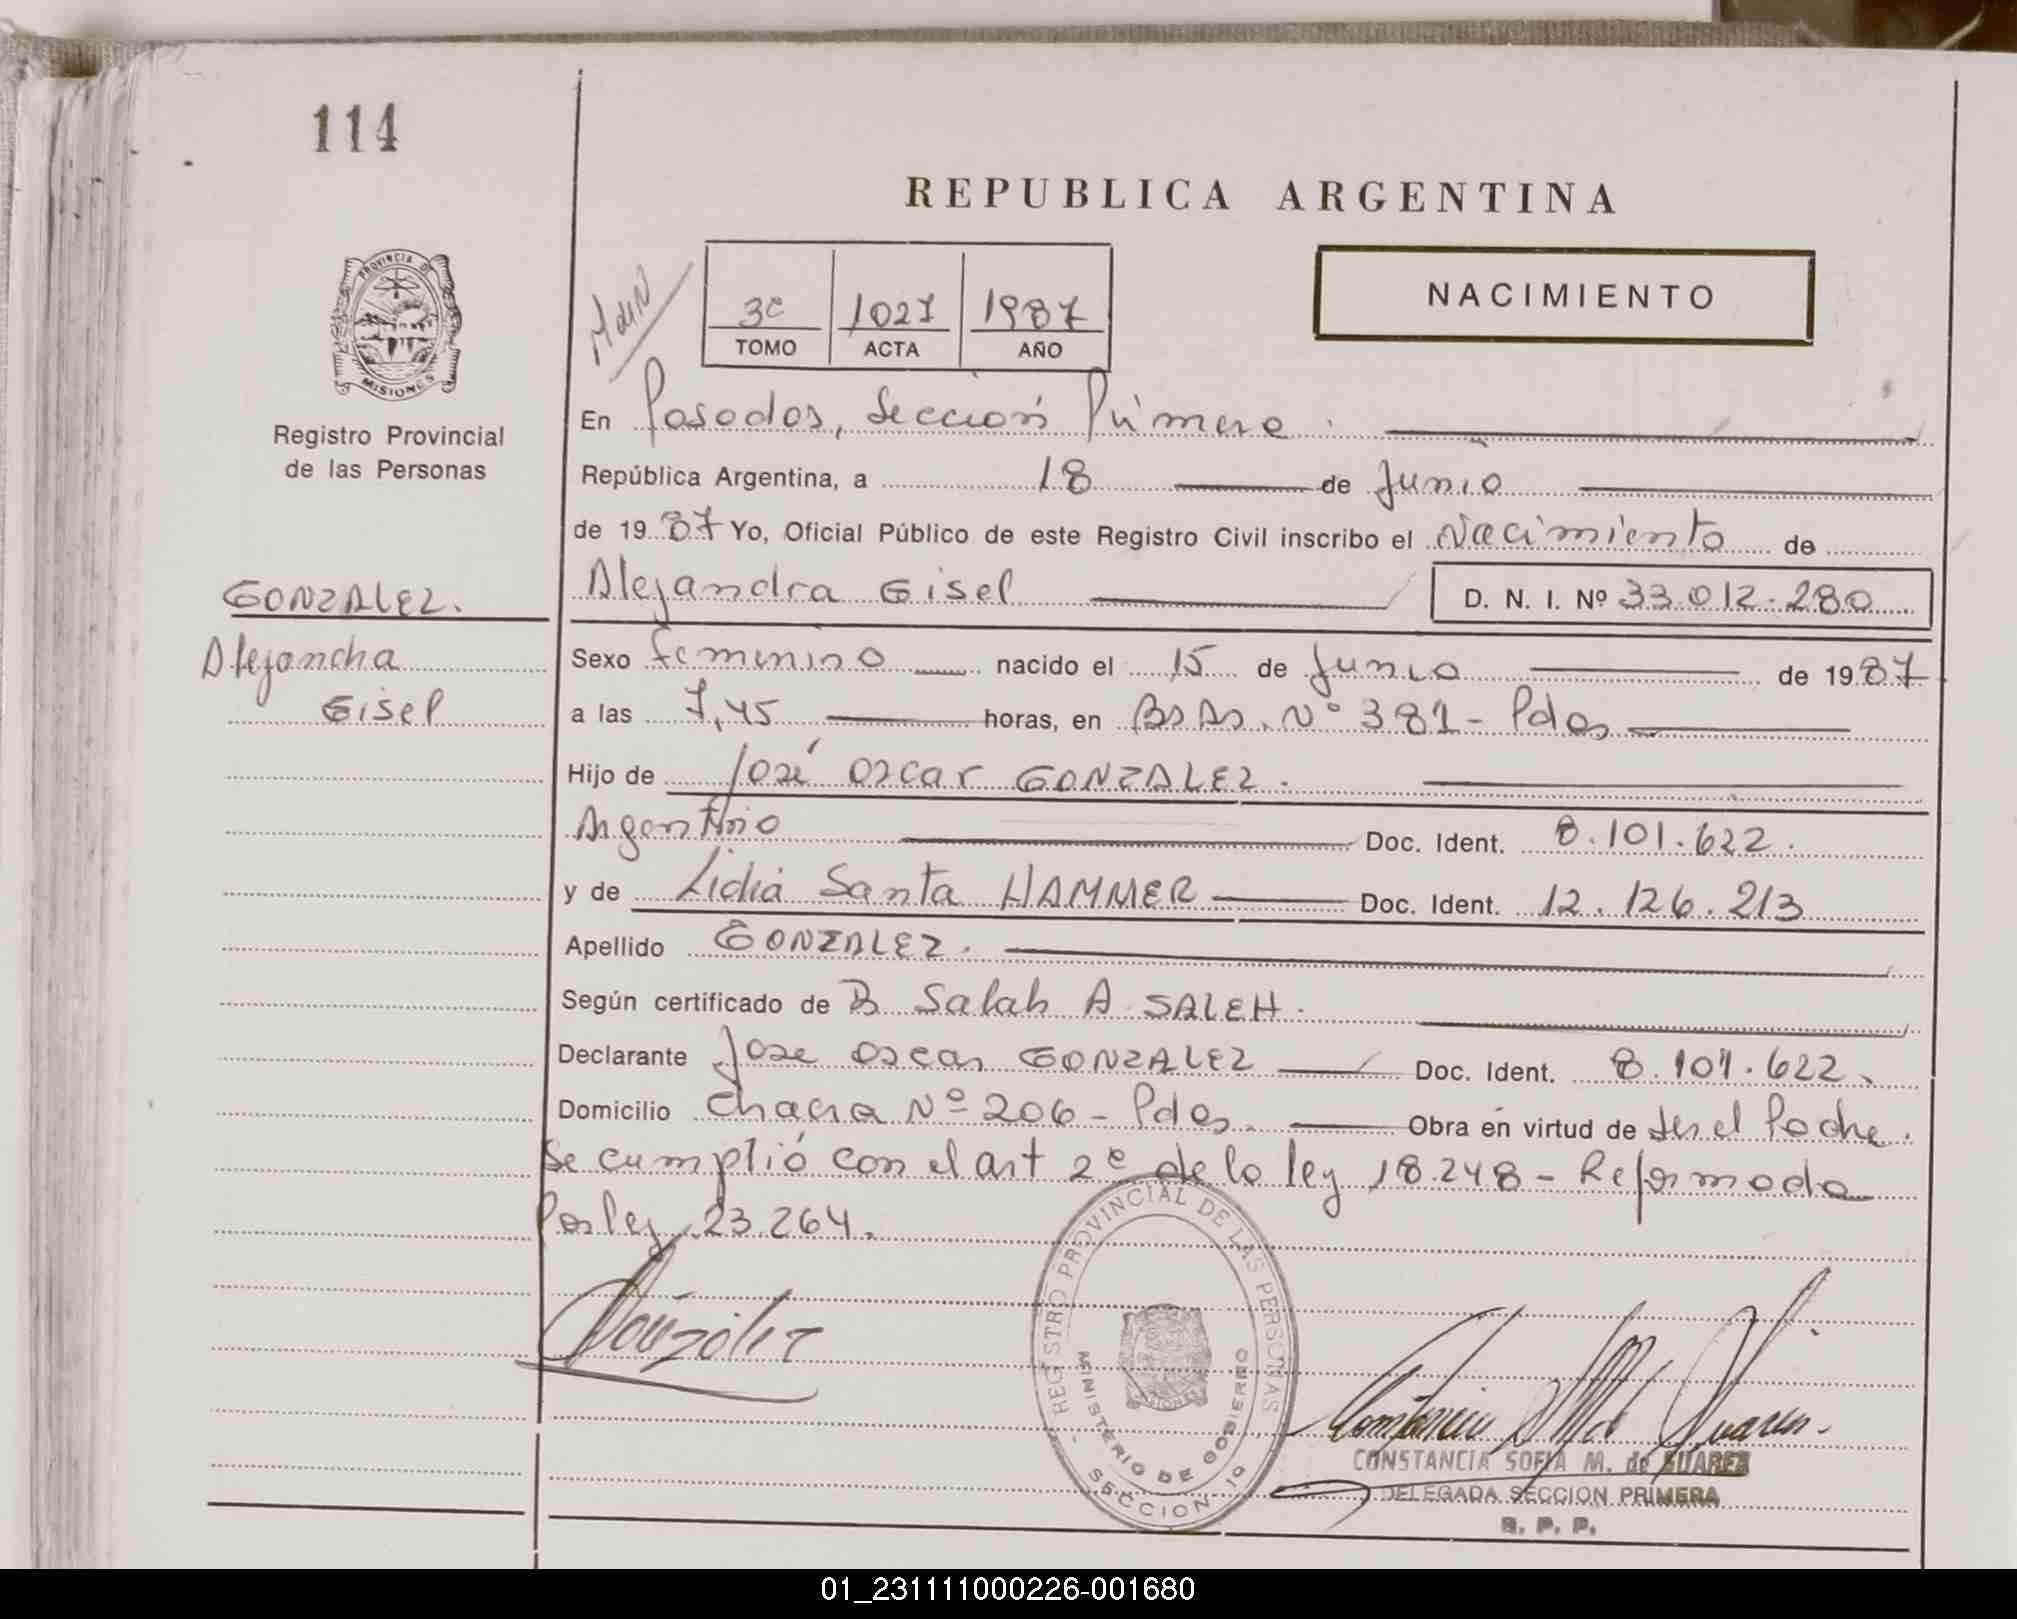 114
REPUBLICA ARGENTINA
PROVINCIA DE
MISIONES
Registro Provincial
de las Personas
3º 1027 1987
TOMO ACTA AÑO
NACIMIENTO
En Posadas, Sección Primera.
República Argentina, a 18 de Junio
de 1987 Yo, Oficial Público de este Registro Civil inscribo el Nacimiento de
GONZALEZ.
Alejandra Gisel D. N. I. Nº 33.012.280
Alejandra
Gisel
Sexo femenino nacido el 15 de Junio de 1987
a las 7,45 horas, en Bs As. Nº 381 - Pdas
Hijo de José Oscar GONZALEZ.
Argentino Doc. Ident. 8.101.622.
y de Lidia Santa HAMMER Doc. Ident. 12.126.213
Apellido GONZALEZ.
Según certificado de Salah A SALEH.
Declarante Jose Oscar GONZALEZ Doc. Ident. 8.101.622.
Domicilio Chacra Nº 206 - Pdas. Obra en virtud de ser el Padre.
Se cumplió con el art 2º de la ley 18.248 - Reformada
Por ley 23.264.
González
REGISTRO PROVINCIAL DE LAS PERSONAS
MINISTERIO DE GOBIERNO
SECCION 1º
Constancia S M de Suarez
CONSTANCIA SOFIA M. de SUAREZ
DELEGADA SECCION PRIMERA
R. P. P.
01_231111000226-001680